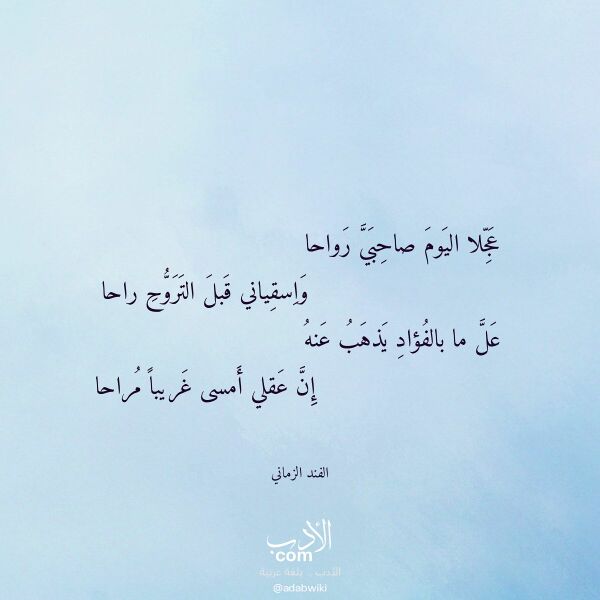 عَجِّلا اليَومَ صاحِبَيَّ رَواحا
وَاِسقِياني قَبلَ التَرَوُّحِ راحا
عَلَّ ما بالفُؤادِ يَذهَبُ عَنهُ
إِنَّ عَقلي أَمسى غَريباً مُراحا
الفند الزماني
الأدب
com
الأدب .. بلغة عربية
@adabwiki